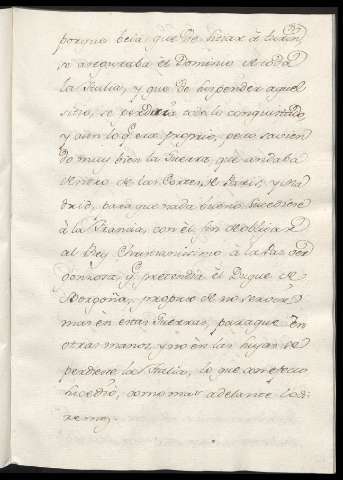 porque beia que de sitiar à Turin,
se aseguraba el Dominio de toda
la Italia, y que de suspender aquel
sitio, se perderia todo lo conquistado,
y aun lo qe era proprio, pero sabien
do muy bien la Guerra, que andaba
dentro de las Cortes, de Paris, y Ma
drid, para que nada bueno sucediese
à la Francia, con el fin de obligar
al Rey Christianissimo à la Paz ver
gonzosa, qe pretendia el Duque de
Borgoña, propuso de no servir
mas en estas Guerras, para que en
otras manos, y no en las suyas se
perdiese la Italia, lo que con efecto
sucedió, como mas adelante lo di
remos.